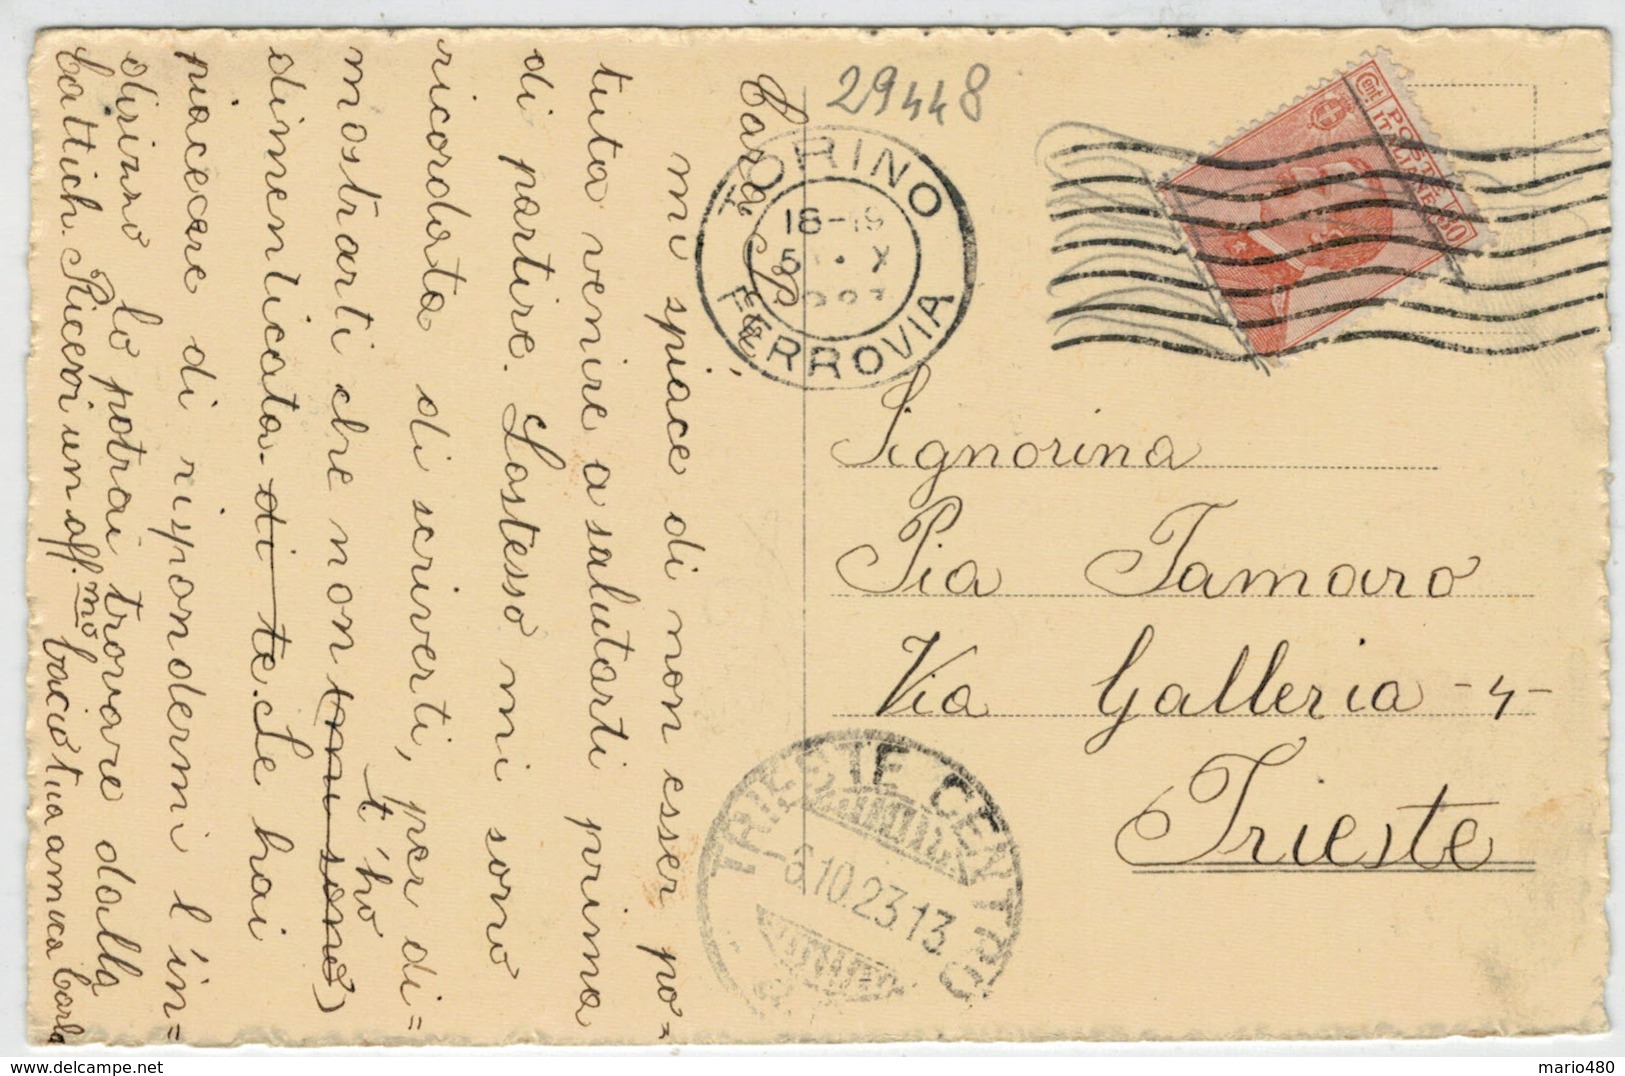 29448
TORINO
FERROVIA
18-19
5 X
POSTE
ITALIANE
Cent. 30
Cara Pia,
mi spiace di non esser po=
tuta venire a salutarti prima
di partire. Lostesso mi sono
ricordata di scriverti, per di=
mostrarti che non (mi sono) t'ho
dimenticata di te. Se hai
piacere di rispondermi l'in=
dirizzo lo potrai trovare dalla
Cattich. Ricevi un aff.mo bacio tua amica Carla
Signorina
Pia Tamaro
Via Galleria -4-
Trieste
TRIESTE CENTRO
6.10.23.13
mario480